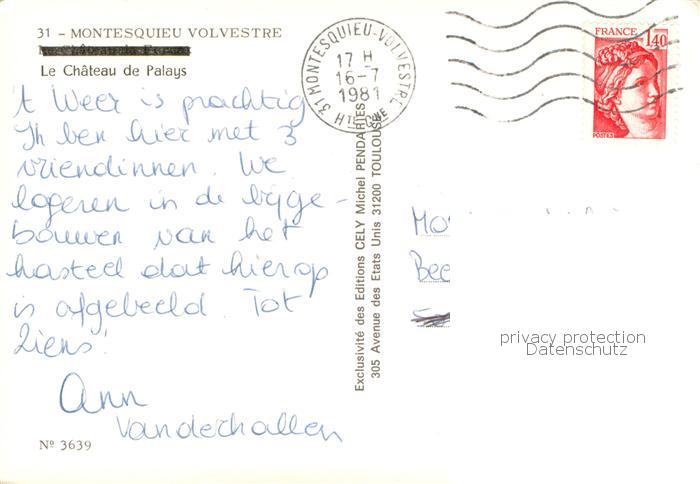 31 - MONTESQUIEU VOLVESTRE
Le Château de Palays
't Weer is prachtig
Ik ben hier met 3
vriendinnen. We
logeren in de bijge-
bouwen van het
kasteel dat hierop
is afgebeeld. Tot
ziens!
Ann
Vanderhallen
Nº 3639
31 MONTESQUIEU-VOLVESTRE
17 H
16-7
1981
Hte GNE
Exclusivité des Editions CELY Michel PENDARIES
305 Avenue des Etats Unis 31200 TOULOUSE
FRANCE
1,40
POSTES
privacy protection
Datenschutz